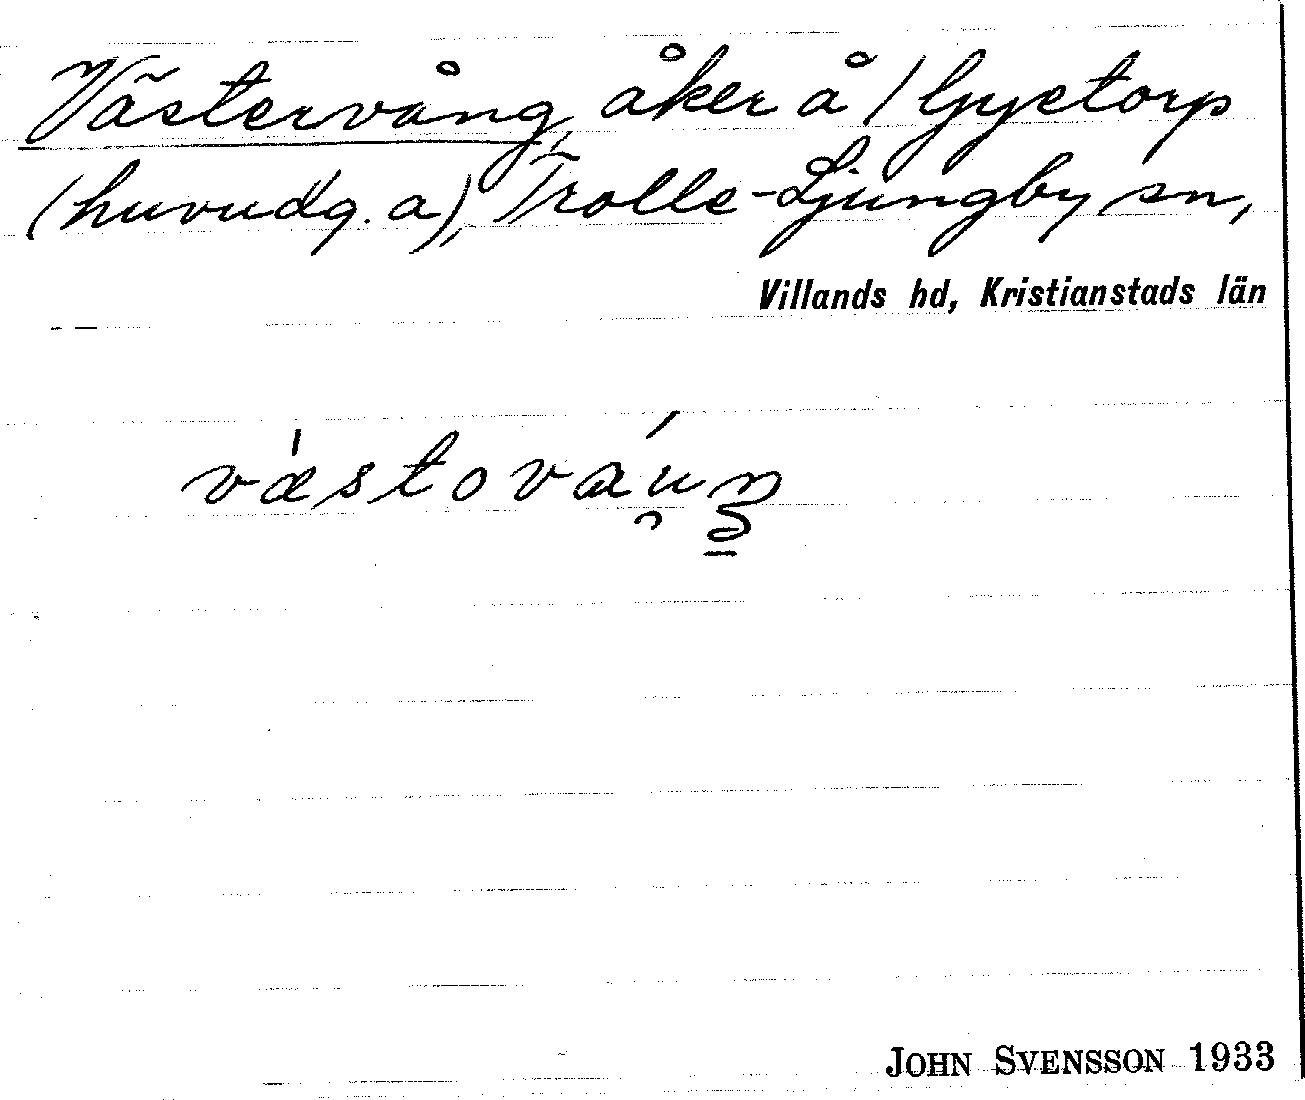 Västervång, åker å 1 Gyetorp
(huvudg. a), Trolle-Ljungby sn,
Villands hd, Kristianstads län
JOHN SVENSSON 1933